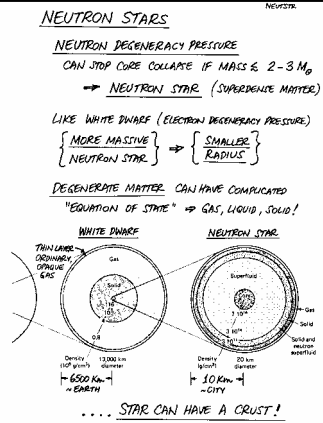 NEUTSTR
NEUTRON STARS
NEUTRON DEGENERACY PRESSURE
CAN STOP CORE COLLAPSE IF MASS ≲ 2-3 M⊙
→ NEUTRON STAR (SUPERDENSE MATTER)
LIKE WHITE DWARF (ELECTRON DEGENERACY PRESSURE)
{ MORE MASSIVE NEUTRON STAR } ⇒ { SMALLER RADIUS }
DEGENERATE MATTER CAN HAVE COMPLICATED
"EQUATION OF STATE" ⇒ GAS, LIQUID, SOLID!
WHITE DWARF
NEUTRON STAR
THIN LAYER
ORDINARY,
OPAQUE
GAS
Gas
Solid
16
10
4
0.8
Density
(10⁶ g/cm³)
13,000 km
diameter
6500 Km
~ EARTH
Superfluid
Gas
Solid
Solid and
neutron
superfluid
Density
(g/cm³)
20 km
diameter
10 Km
~CITY
.... STAR CAN HAVE A CRUST!